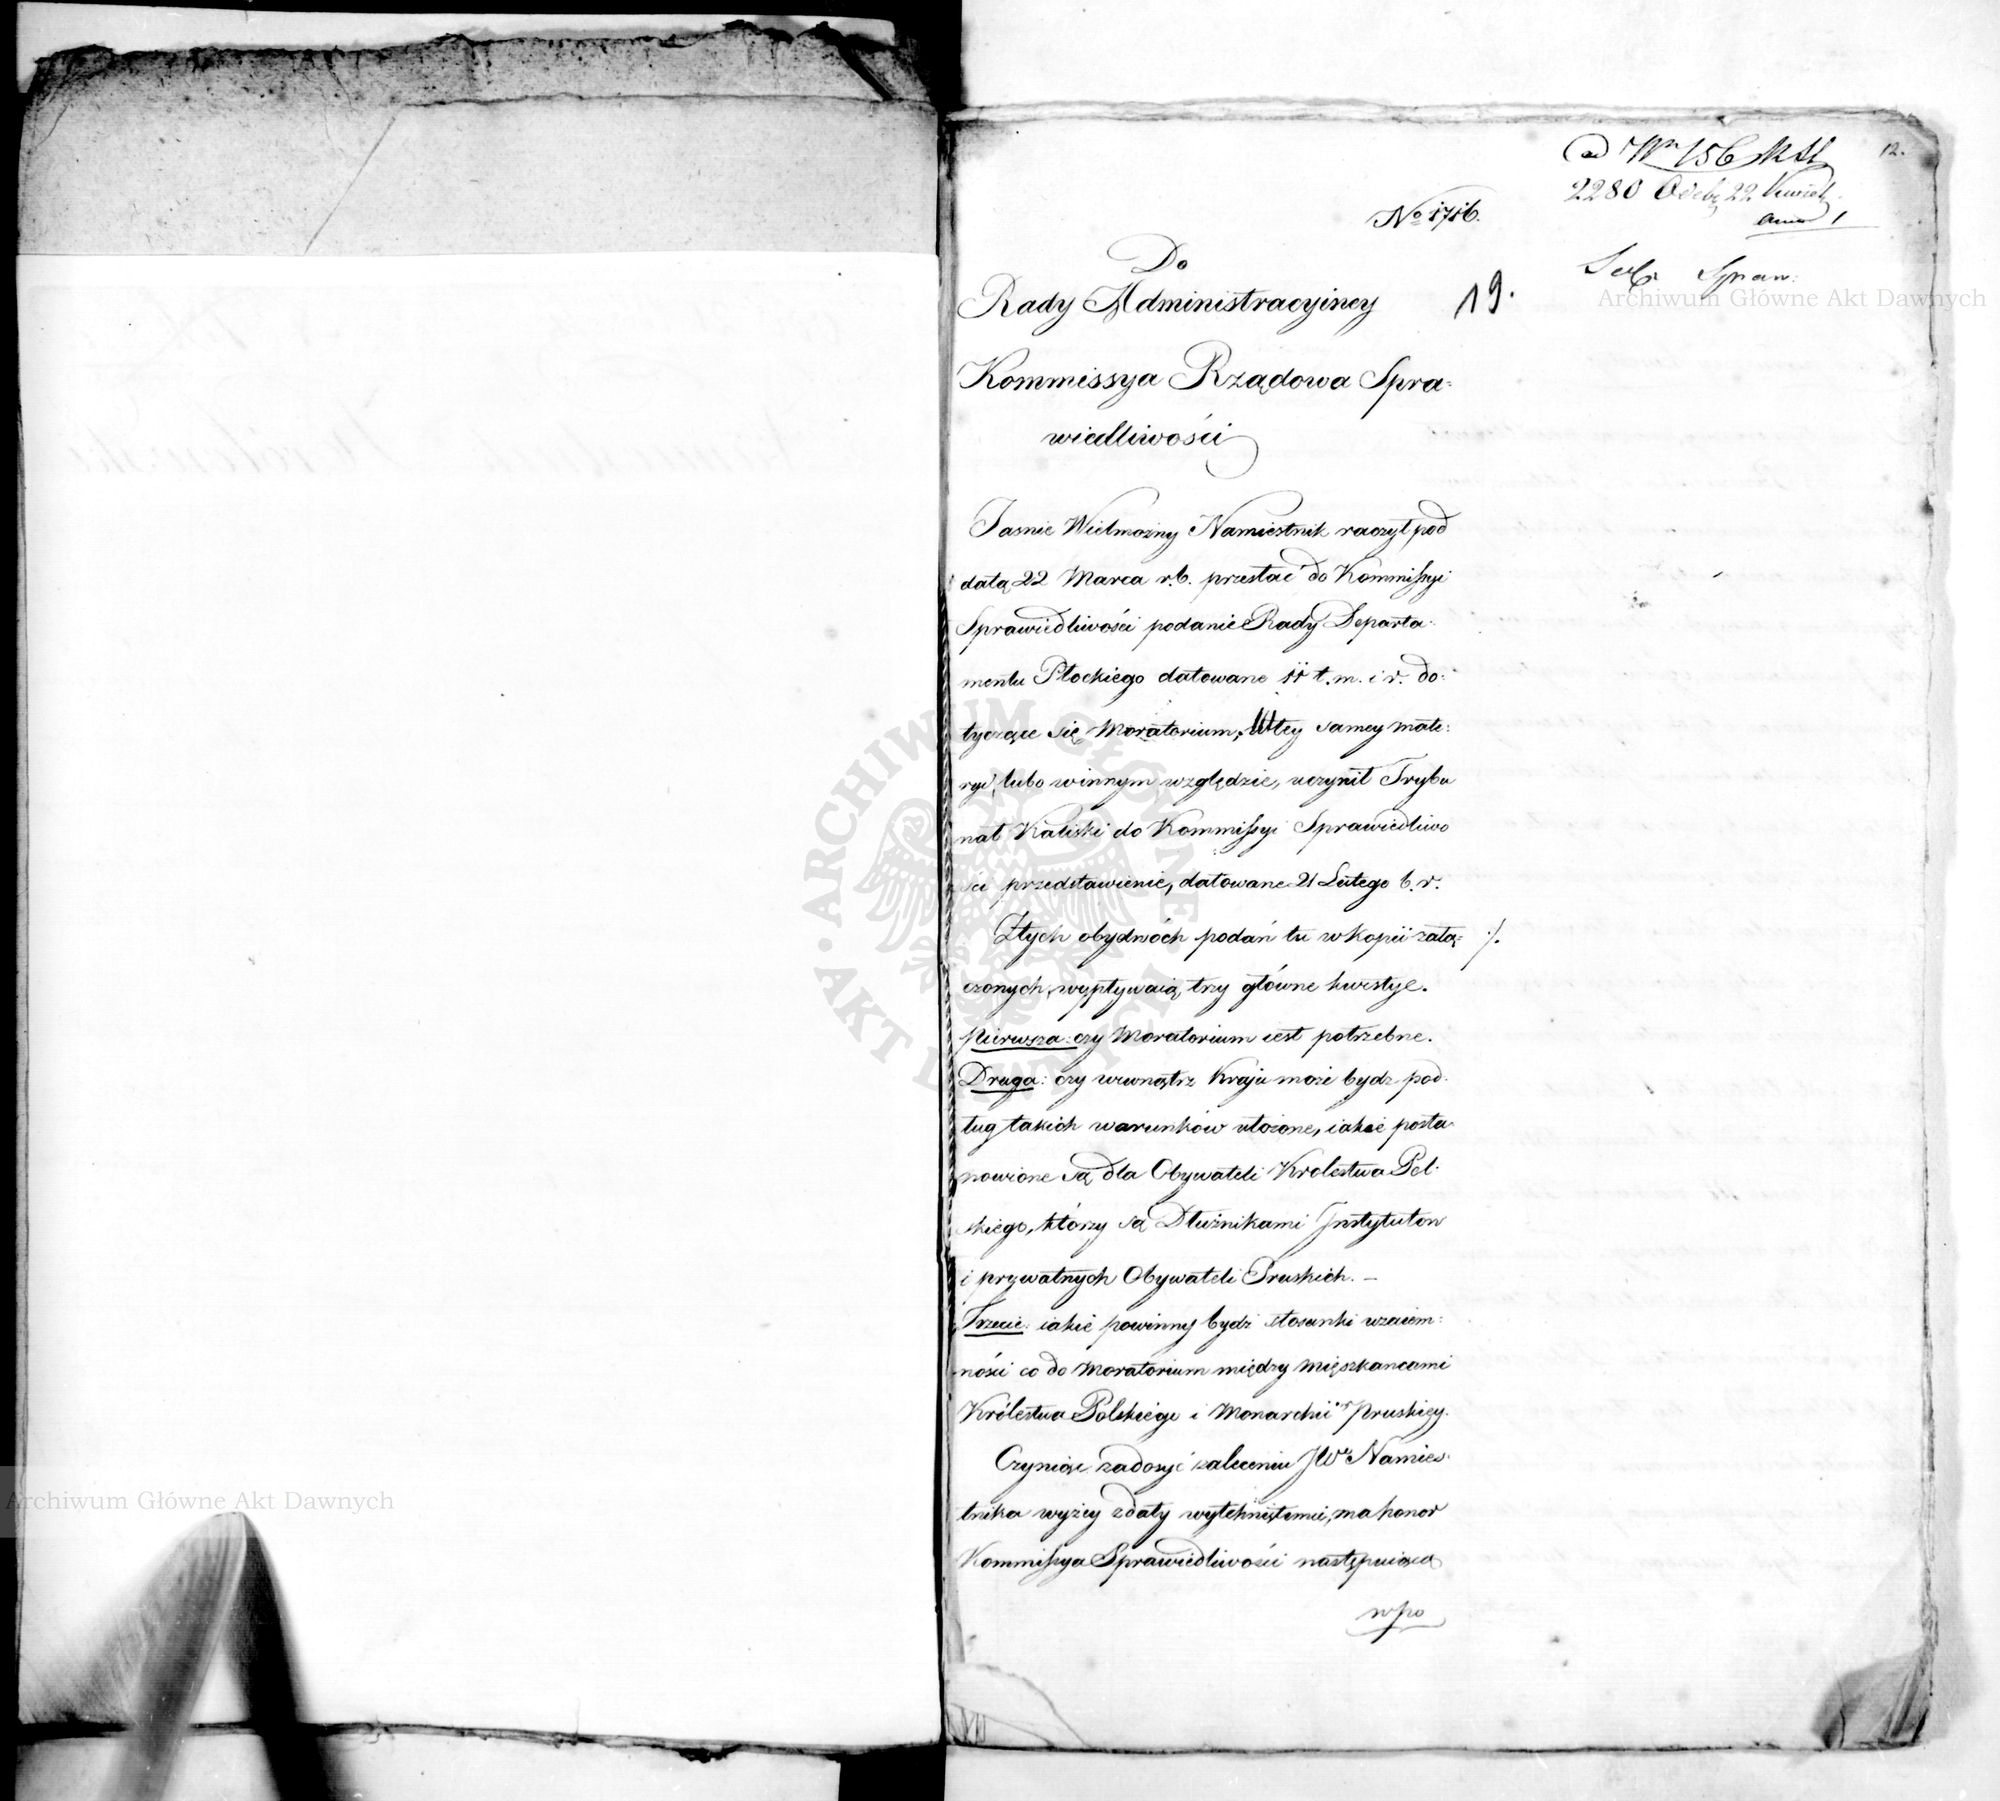 12.
ad Nrm 156
2280 Odeb. 22 Kwiet.
No 1716.
Do
Rady Administracyiney
19.
Kommissya Rządowa Spra=
wiedliwości
Jasnie Wielmożny Namiestnik raczył pod
datą 22 Marca r.b. przesłać do Kommissyi
Sprawiedliwości podanie Rady Departa=
mentu Płockiego datowane 11 t.m. i r. do=
tyczące się Moratorium, W tey samey mate=
ryi, lubo w innym względzie, uczynił Trybu
nał Kaliski do Kommissyi Sprawiedliwo
ści przedstawienie, datowane 21 Lutego b. r.
Z tych obydwóch podań tu w kopii załą= ./.
czonych, wypływaią trzy główne kwestye.
Pierwsza: czy Moratorium iest potrzebne.
Druga: czy wewnątrz Kraju może bydz pod=
ług takich warunków ułożone, iakie posta=
nowione są dla Obywateli Królestwa Pol=
skiego, którzy są Dłużnikami Instytutow
i prywatnych Obywateli Pruskich. —
Trzecie: iakie powinny bydź stosunki wzaiem=
ności co do Moratorium między Mieszkancami
Królestwa Polskiego i Monarchii Pruskiey.
Czyniąc zadosyć zaleceniu JWo Namies=
tnika wyżey z daty wytchniętemu, ma honor
Kommissya Sprawiedliwości następuiącą
Archiwum Główne Akt Dawnych
Archiwum Główne Akt Dawnych
ARCHIWUM GŁÓWNE AKT DAWNYCH